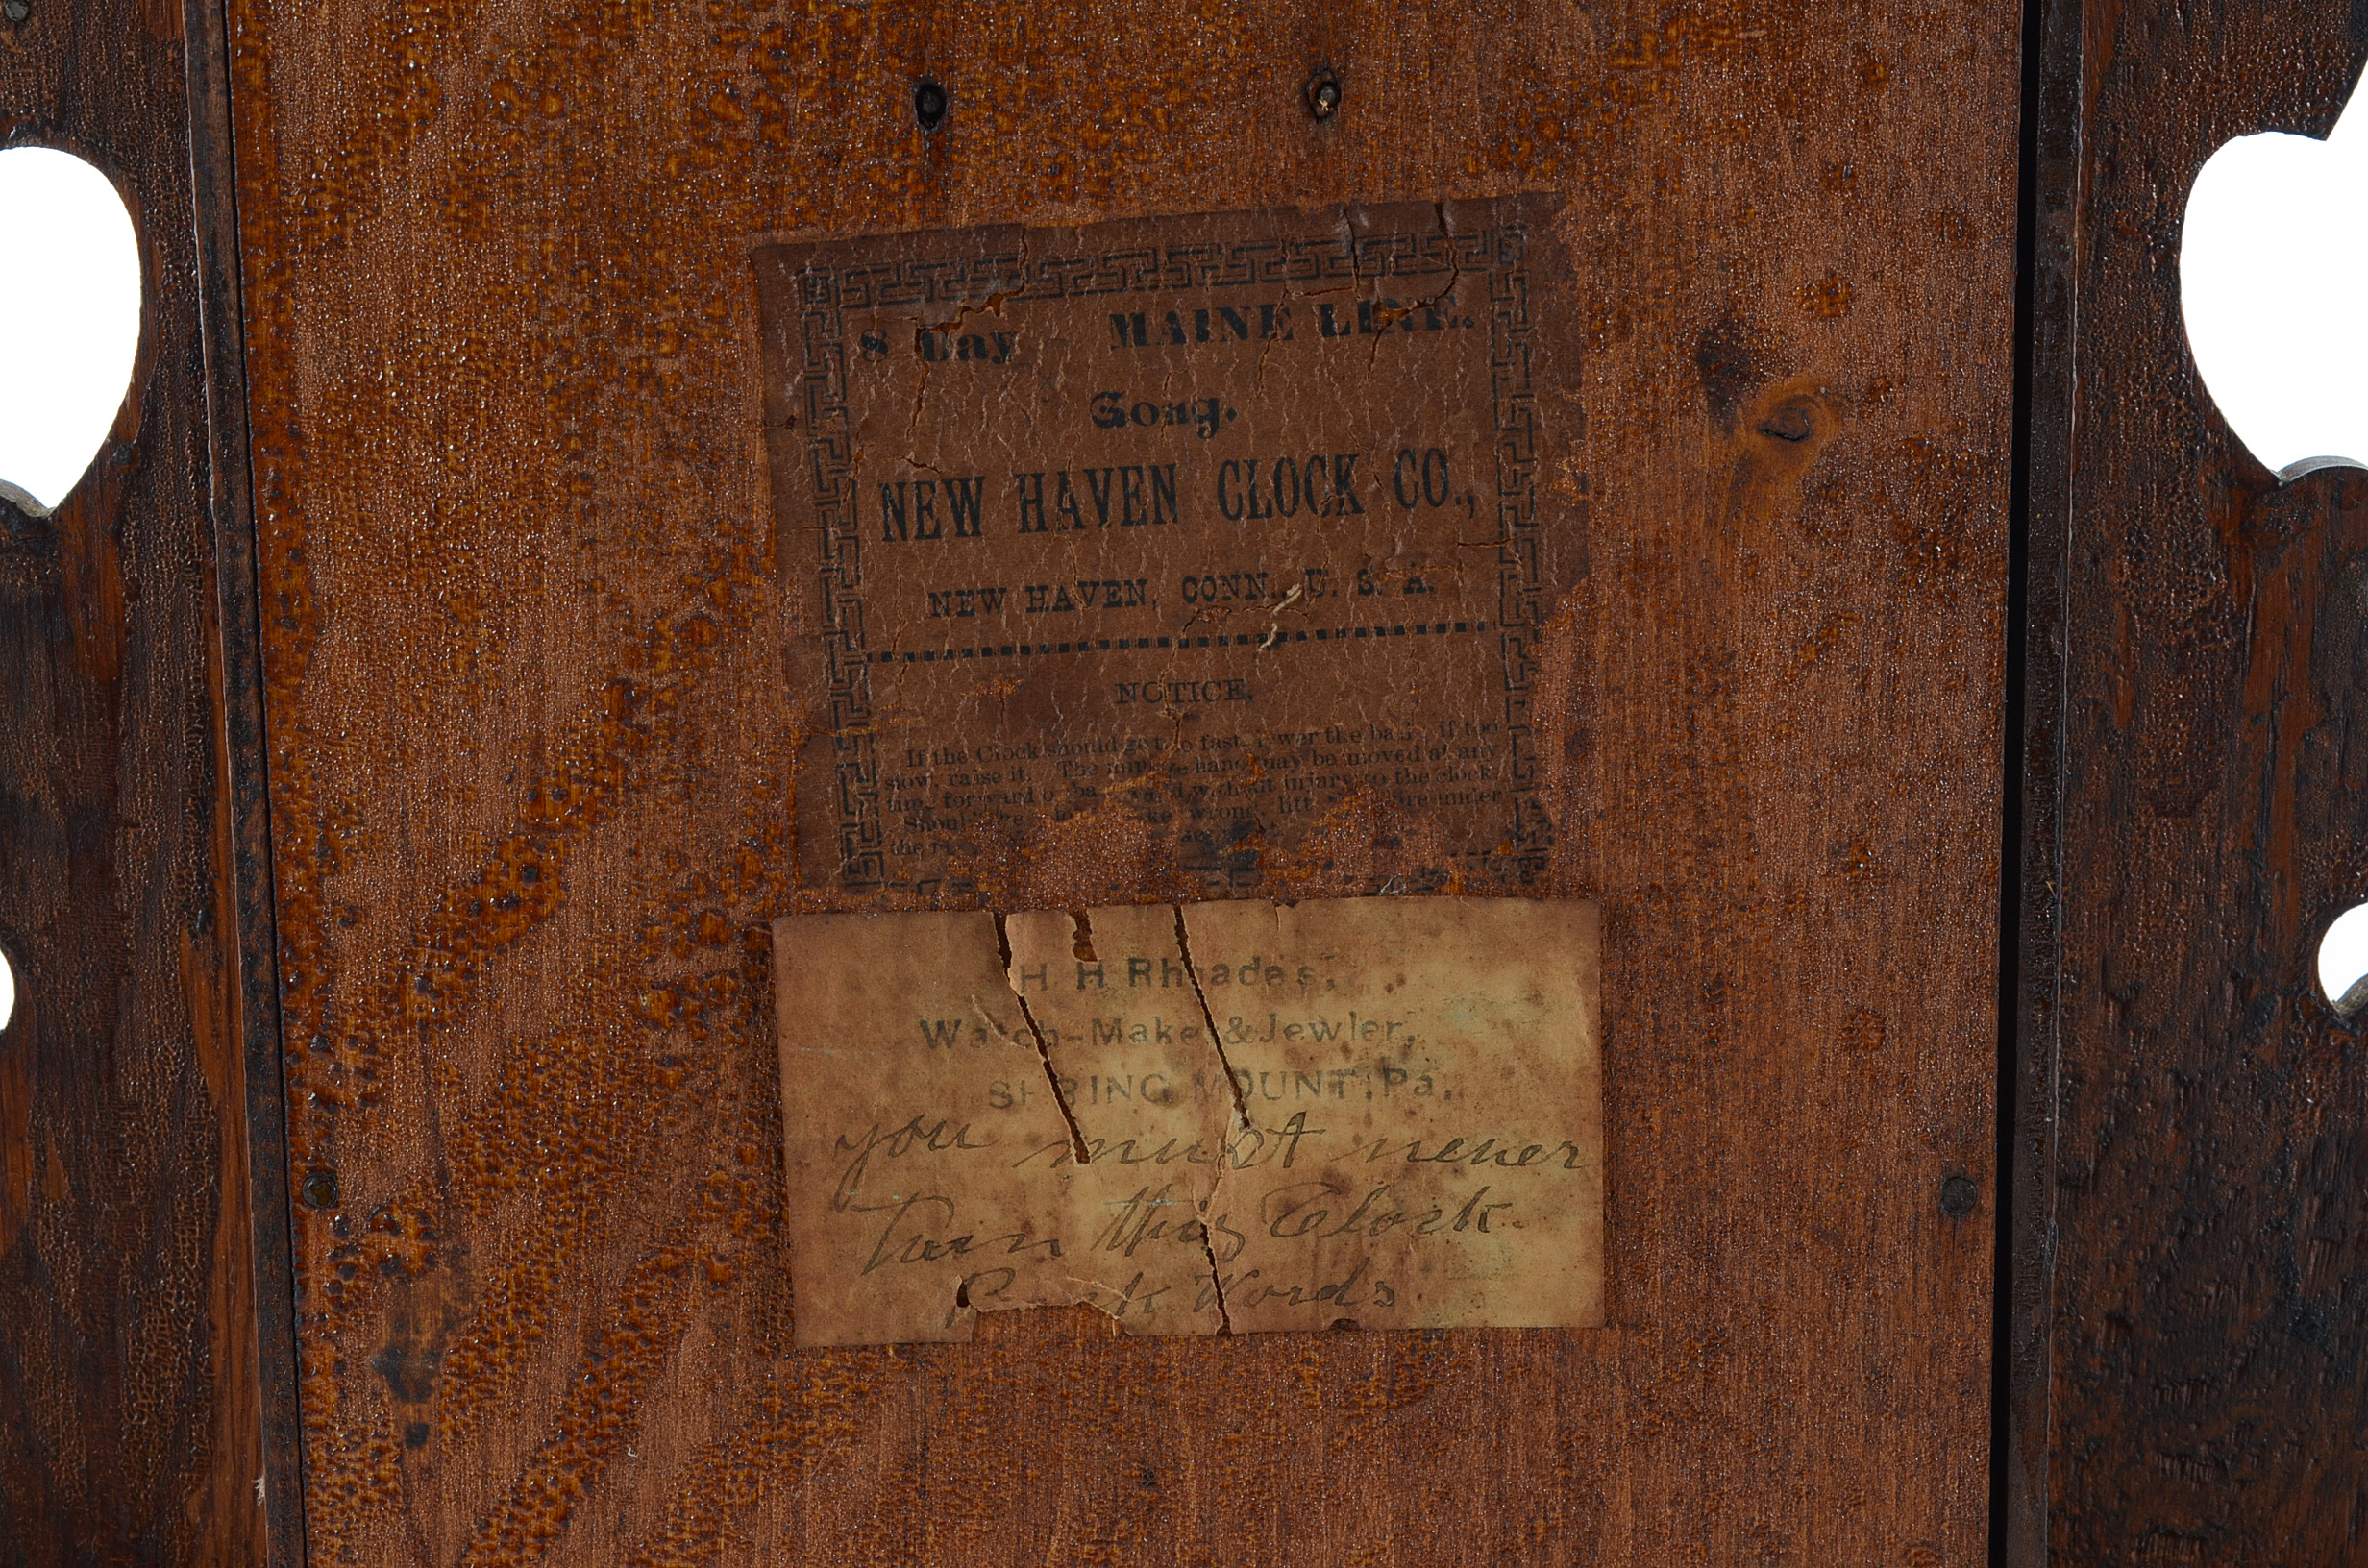 8 Day - MAINE LINE.
Gong.
NEW HAVEN CLOCK CO.,
NEW HAVEN, CONN., U. S. A.
NOTICE.
If the Clock should get too fast, lower the ball, if too
slow, raise it. The minute hand may be moved at any
time, forward or backward without injury to the clock.
Should wrong, under
the
H H Rhoades,
Watch-Maker & Jewler,
SPRING MOUNT, Pa.
you must never
Turn this Clock.
Back Words